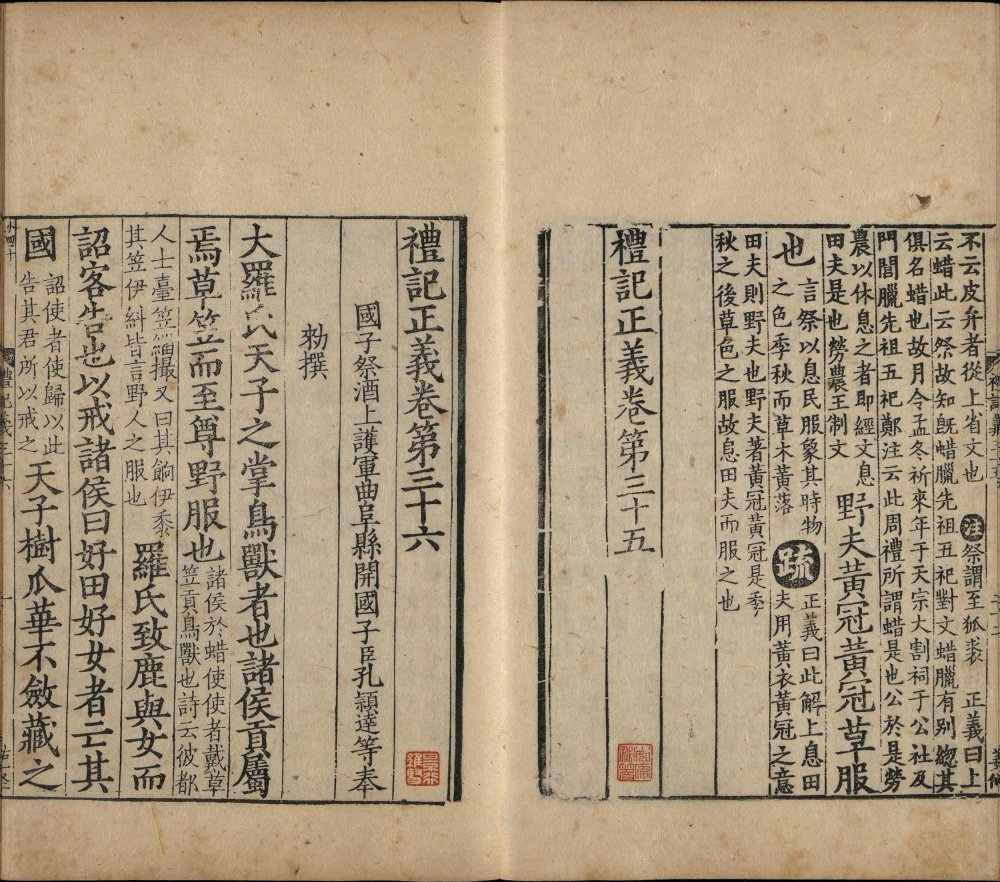 不云皮弁者從上省文也 注 祭謂至狐裘 正義曰上
云蜡此云祭故知既蜡臘先祖五祀對文蜡臘有別總其
俱名蜡也故月令孟冬祈來年于天宗大割祠于公社及
門閭臘先祖五祀鄭注云此周禮所謂蜡是也公於是勞
農以休息之者即經文息
田夫是也勞農王制文
野夫黃冠黃冠草服
也
言祭以息民服象其時物
之色季秋而草木黃落
疏
正義曰此解上息田
夫用黃衣黃冠之意
田夫則野夫也野夫著黃冠黃冠是季
秋之後草色之服故息田夫而服之也
禮記正義卷第三十五
禮記正義卷第三十六
國子祭酒上護軍曲阜縣開國子臣孔穎達等奉
勑撰
大羅氏天子之掌鳥獸者也諸侯貢屬
焉草笠而至尊野服也
諸侯於蜡使使者戴草
笠貢鳥獸也詩云彼都
人士臺笠緇撮又曰其餉伊黍
其笠伊糾皆言野人之服也
羅氏致鹿與女而
詔客告也以戒諸侯曰好田好女者亡其
國
詔使者使歸以此
告其君所以戒之
天子樹瓜華不斂藏之